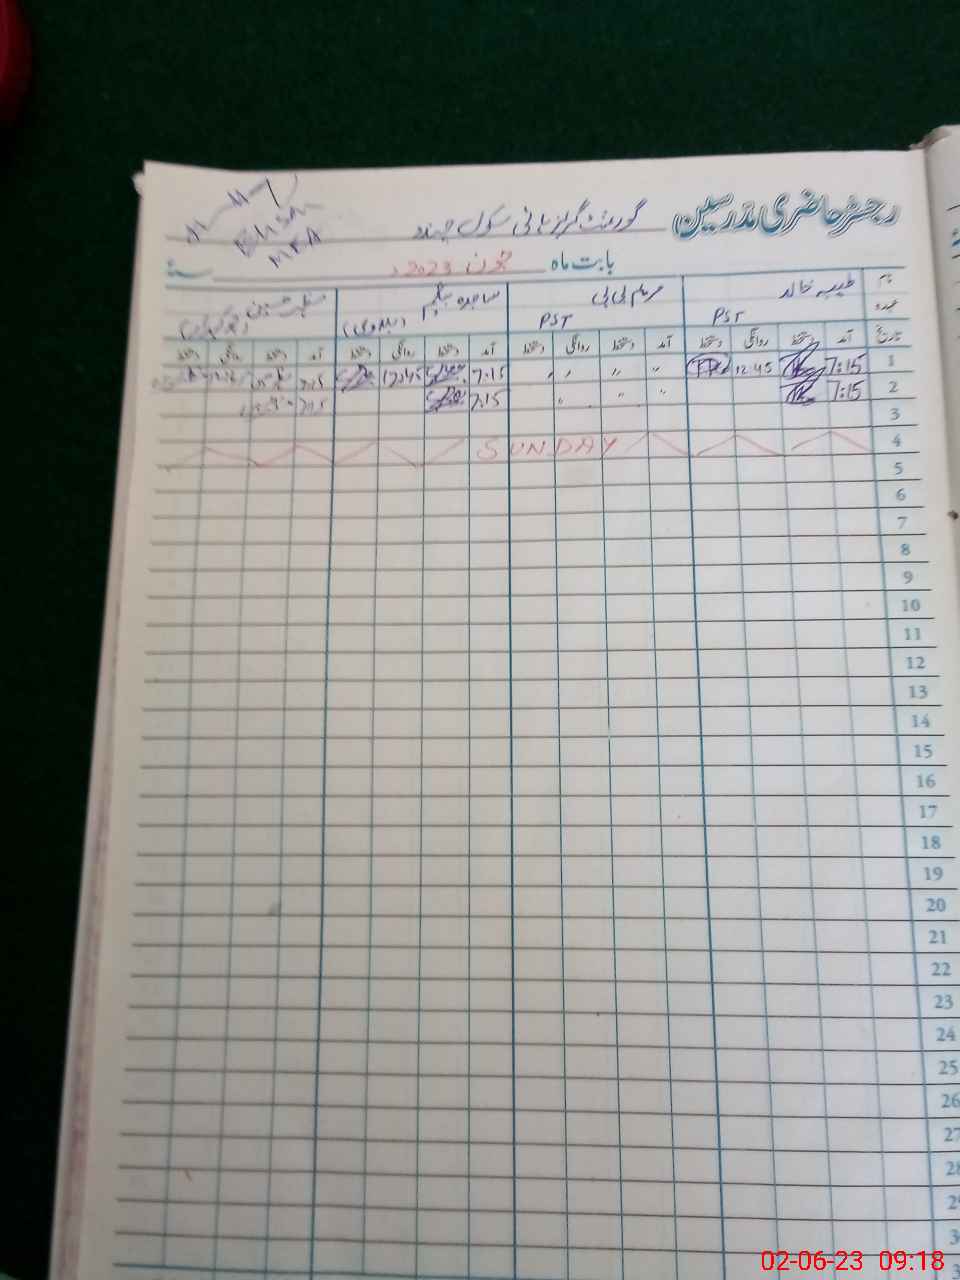 رجسٹر حاضری مدرسین گورنمنٹ گرلز ہائی سکول
Ehsan
MEA
بابت ماہ جون 2023ء سنہ
نام طیبہ خالد مریم بی بی ساجدہ بیگم
عہدہ PST PST
تاریخ آمد دستخط روانگی دستخط آمد دستخط روانگی دستخط آمد دستخط روانگی دستخط آمد دستخط روانگی دستخط
1 7:15 12:45 " " " " 7:15 12:45 7:15
2 7:15 " " " 7:15 7:15
3
4 SUNDAY
5
6
7
8
9
10
11
12
13
14
15
16
17
18
19
20
21
22
23
24
25
26
27
28
02-06-23 09:18